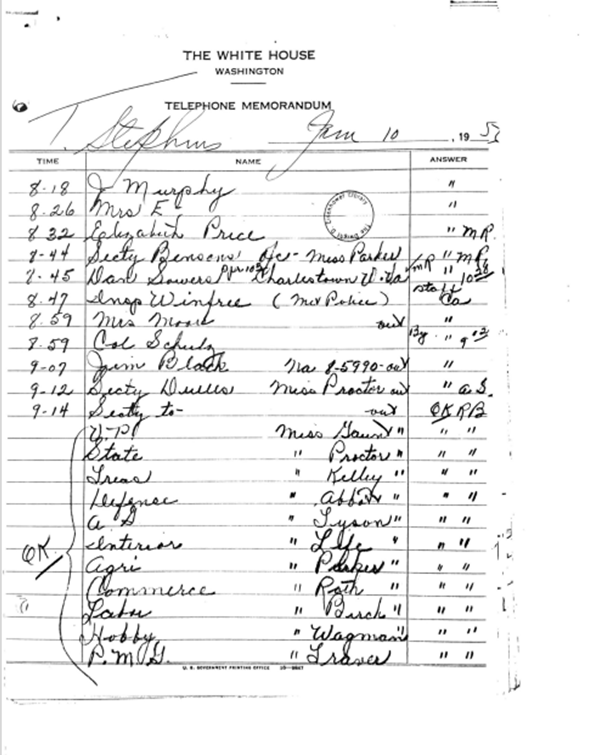 THE WHITE HOUSE
WASHINGTON
TELEPHONE MEMORANDUM
T. Stephens Jan 10, 195
TIME NAME ANSWER
8-18 J Murphy "
8.26 Mrs E "
8 32 Elizabeth Price " MR
8-44 Secty Bensons ofc- Miss Parker " MR
8-45 Dan Sowers Charlestown W.Va MR " 10
8.47 Insp Winfree (Met Police) Co
8.59 Mrs Moore out "
8.59 Col Schulz By. " 9
9-07 Jim Black Na 8-5990-out "
9-12 Secty Dulles Miss Proctor out " a S.
9-14 Secty to- out OK RB
V.P. Miss Gaunt " " "
State " Proctor " " "
Treas " Kelley " " "
Defense " Abbott " " "
A G " Tyson " " "
OK Interior " " " "
Agri " Parker " " "
Commerce " Roth " " "
Labor " Burch " " "
Hobby " Wagman " " "
P.M.G. " Traver " "
U. S. GOVERNMENT PRINTING OFFICE